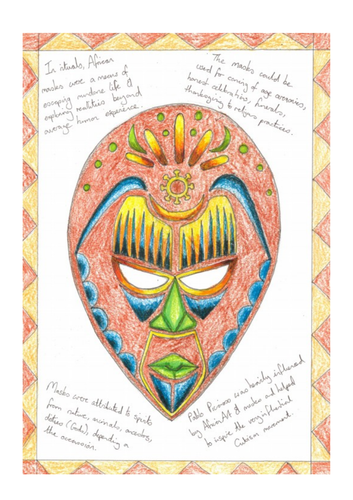 In rituals, African
masks were a means of
escaping mundane life &
exploring realities beyond
average human experience.
The masks could be
used for coming of age ceremonies,
harvest celebrations, funerals,
thanksgiving to religious practices.
Masks were attributed to spirits
from nature, animals, ancestors,
deities (Gods), depending on
the ceremonies.
Pablo Picasso was heavily influenced
by African Art & masks and helped
to inspire the very influential
Cubism movement.